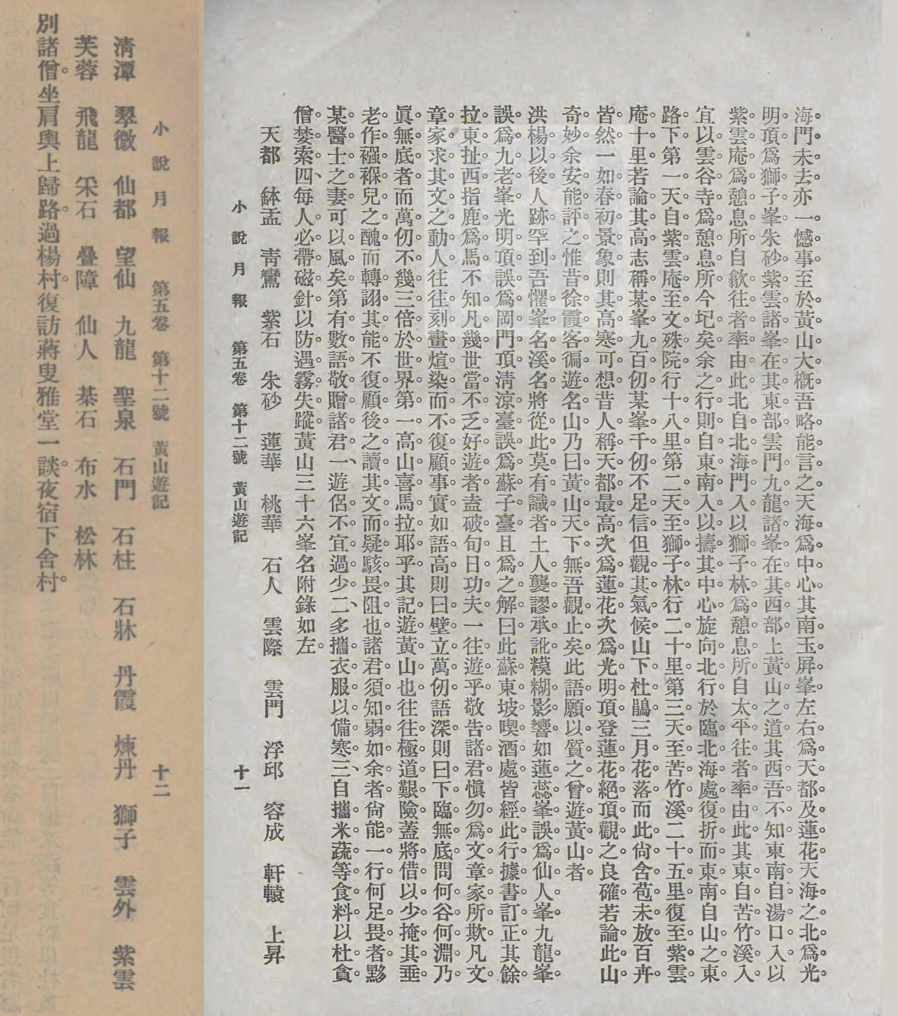 海門未去亦一憾事至於黃山大概吾略能言之天海爲中心其南玉屛峯左右爲天都及蓮花天海之北爲光
明頂爲獅子峯朱砂紫雲諸峯在其東部雲門九龍諸峯在其西部上黃山之道其西吾不知東南自湯口入以
紫雲庵爲憩息所自歙往者率由此北自北海門入以獅子林爲憩息所自太平往者率由此其東自苦竹溪入
宜以雲谷寺爲憩息所今圮矣余之行則自東南入以擣其中心旋向北行於臨北海處復折而東南自山之東
路下第一天自紫雲庵至文殊院行十八里第二天至獅子林行二十里第三天至苦竹溪二十五里復至紫雲
庵十里若論其高志稱某峯九百仞某峯千仞不足信但觀其氣候山下杜鵑三月花落而此尙含苞未放百卉
皆然一如春初景象則其高寒可想昔人稱天都最高次爲蓮花次爲光明頂登蓮花絕頂觀之良確若論此山
奇妙余安能評之惟昔徐霞客徧遊名山乃曰黃山天下無吾觀止矣此語願以質之曾遊黃山者
洪楊以後人跡罕到吾懼峯名溪名將從此莫有識者土人襲謬承訛糢糊影響如蓮蕊峯誤爲仙人峯九龍峯
誤爲九老峯光明頂誤爲岡門頂淸涼臺誤爲蘇子臺且爲之解曰此蘇東坡喫酒處皆經此行據書訂正其餘
拉東扯西指鹿爲馬不知凡幾世當不乏好遊者盍破旬日功夫一往遊乎敬吿諸君愼勿爲文章家所欺凡文
章家求其文之動人往往刻畫煊染而不復顧事實如語高則曰壁立萬仞語深則曰下臨無底問何谷何淵乃
眞無底者而萬仞不幾三倍於世界第一高山喜馬拉耶乎其記遊黃山也往往極道艱險蓋將借以少掩其垂
老作襁褓兒之醜而轉詡其能不復顧後之讀其文而疑駭畏阻也諸君須知弱如余者尙能一行何足畏者黟
某醫士之妻可以風矣第有數語敬贈諸君一、遊侶不宜過少二、多攜衣服以備寒三、自攜米蔬等食料以杜貪
僧婪索四、每人必帶磁針以防遇霧失蹤黃山三十六峯名附錄如左
天都　鉢盂　靑鸞　紫石　朱砂　蓮華　桃華　石人　雲際　雲門　浮邱　容成　軒轅　上昇
小說月報　第五卷　第十二號　黃山遊記　十一
小說月報　第五卷　第十二號　黃山遊記　十二
淸潭　翠微　仙都　望仙　九龍　聖泉　石門　石柱　石牀　丹霞　煉丹　獅子　雲外　紫雲
芙蓉　飛龍　采石　疊障　仙人　棊石　布水　松林
別諸僧坐肩輿上歸路過楊村復訪蔣叟雅堂一談夜宿下舍村